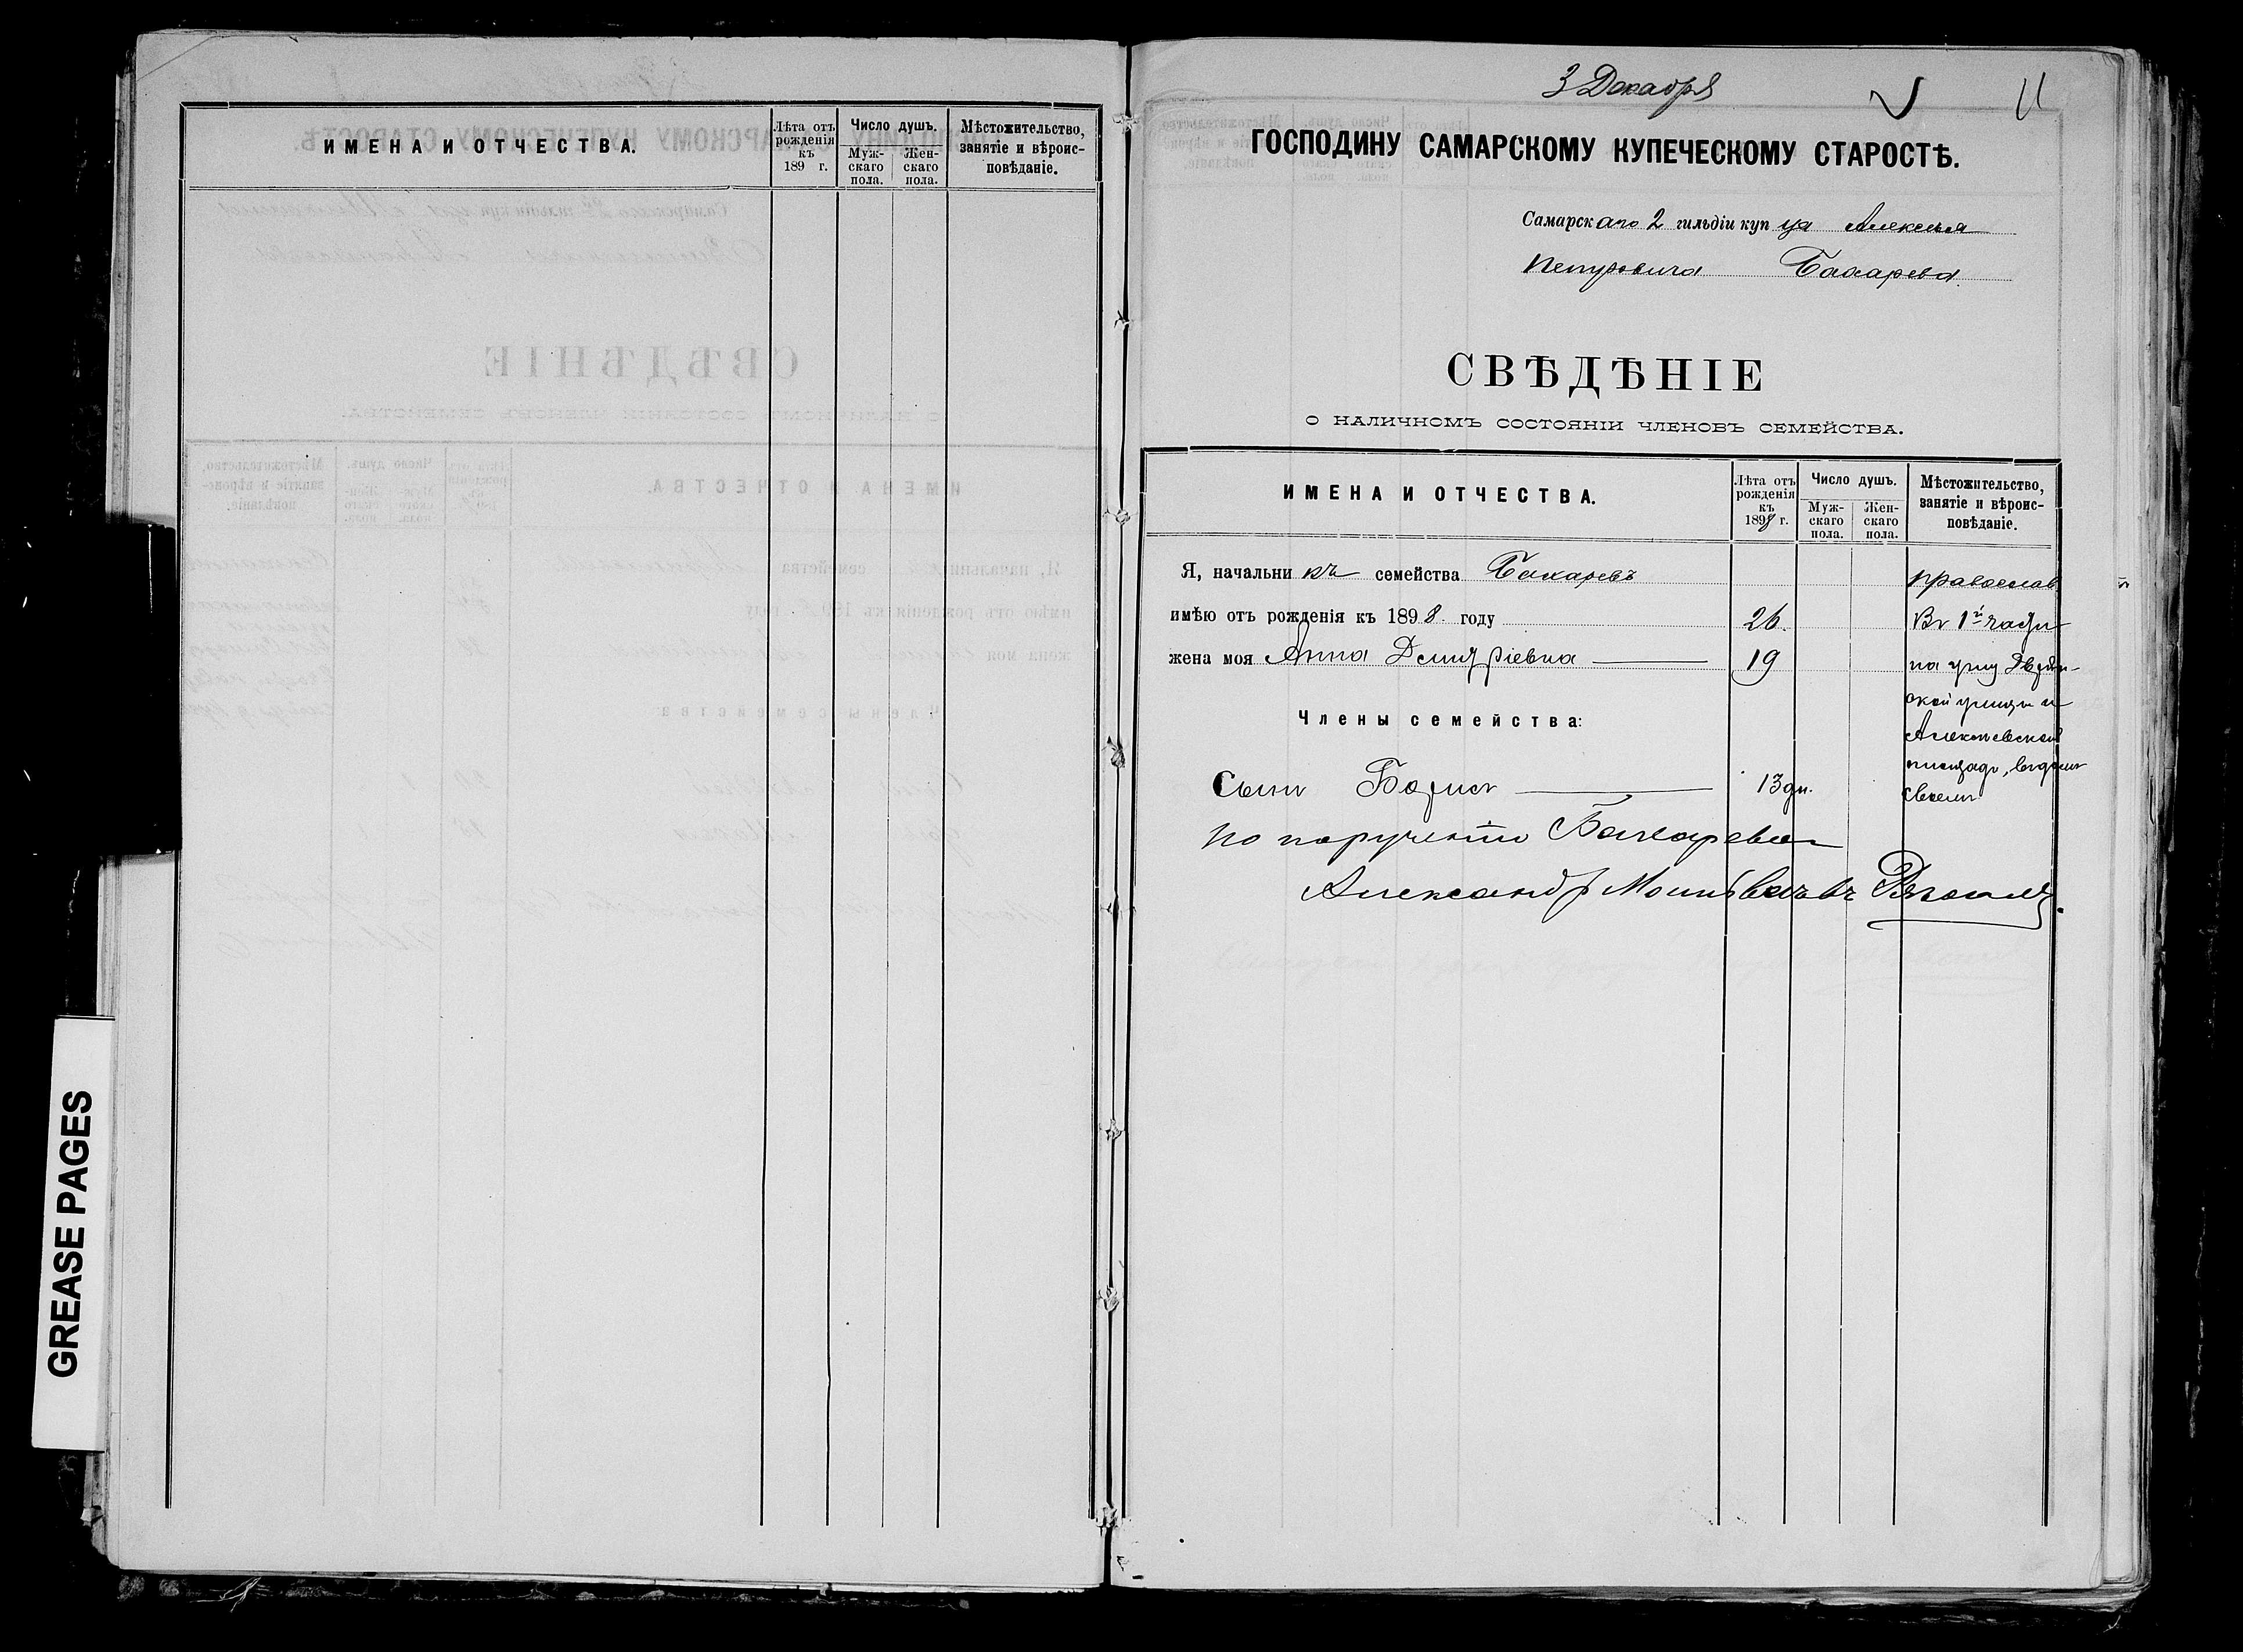 ИМЕНА И ОТЧЕСТВА.
Лѣта отъ рожденія къ 189 г.
Число душъ.
Муж-скаго пола.
Жен-скаго пола.
Мѣстожительство, занятіе и вѣроис-повѣданіе.
GREASE PAGES
3 Декабря
11
ГОСПОДИНУ САМАРСКОМУ КУПЕЧЕСКОМУ СТАРОСТѢ.
Самарскаго 2 гильдіи купца Алексѣя
Петровича Бахарева.
СВѢДѢНІЕ
О НАЛИЧНОМЪ СОСТОЯНІИ ЧЛЕНОВЪ СЕМЕЙСТВА.
ИМЕНА И ОТЧЕСТВА.
Лѣта отъ рожденія къ 1898 г.
Число душъ.
Муж-скаго пола.
Жен-скаго пола.
Мѣстожительство, занятіе и вѣроис-повѣданіе.
Я, начальникъ семейства Бахаревъ
православ
имѣю отъ рожденія къ 1898. году 26.
Въ 1й части
жена моя Анна Дмитріевна 19
на углу Дворян-
ской улицы и
Члены семейства:
Алексѣевской
площади, въ домѣ
Сынъ Борисъ 13 дн.
своемъ
По порученію Бахарева
Александръ